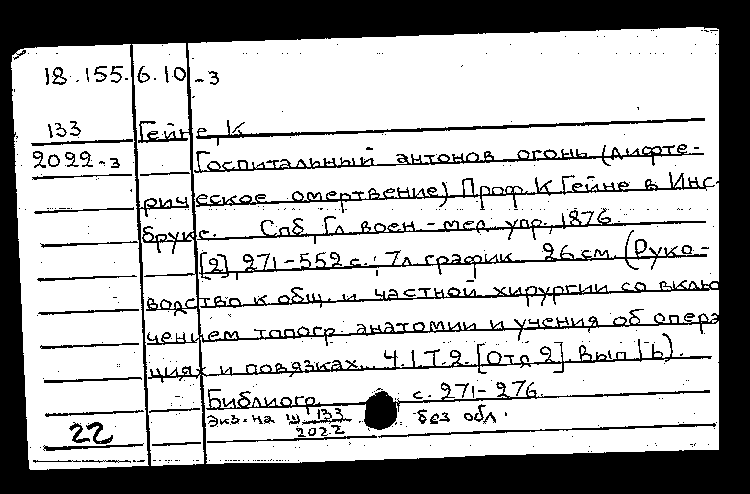 18.155.6.10-3
133
2022-3
Гейне, К
Госпитальный антонов огонь (дифте-
рическое омертвение) Проф. К Гейне в Инс-
бруке. Спб, Гл воен.-мед упр., 1876
[2], 271-552 с.; 7л график 26 см. (Руко-
водство к общ. и частной хирургии со вклю
чением топогр. анатомии и учения об опера
циях и повязках... Ч.I.Т.2. [Отд 2]. Вып 1 b).
Библиогр с. 271-276.
Экз. на ш 133 без обл.
2022
22